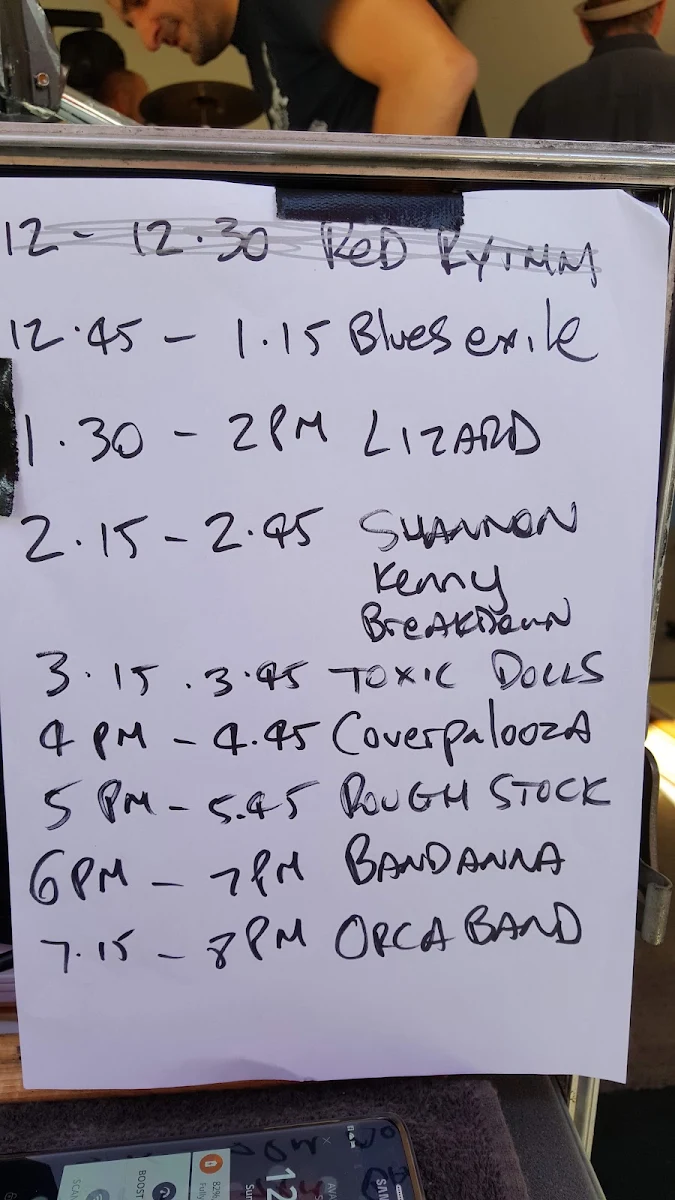 12 - 12.30 ReD RYTMM
12.45 - 1.15 Blues exile
1.30 - 2PM LIZARD
2.15 - 2.45 SHANNON
Kenny
BreAKDowN
3.15 . 3.45 TOXIC DOLLS
4 PM - 4.45 CoverpaloozA
5 PM - 5.45 ROUGH STOCK
6PM - 7PM BANDANNA
7.15 - 8PM ORCA BAND
BOOST
82%
Fully
Su
12
SAM